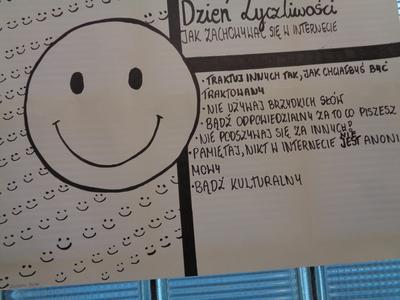 Dzień Życzliwości
JAK ZACHOWYWAĆ SIĘ W INTERNECIE
• TRAKTUJ INNYCH TAK, JAK CHCIAŁBYŚ BYĆ
TRAKTOWANY
• NIE UŻYWAJ BRZYDKICH SŁÓW
• BĄDŹ ODPOWIEDZIALNY ZA TO CO PISZESZ
• NIE PODSZYWAJ SIĘ ZA INNYCH
• PAMIĘTAJ, NIKT W INTERNECIE NIE JEST ANONI
MOWY
• BĄDŹ KULTURALNY